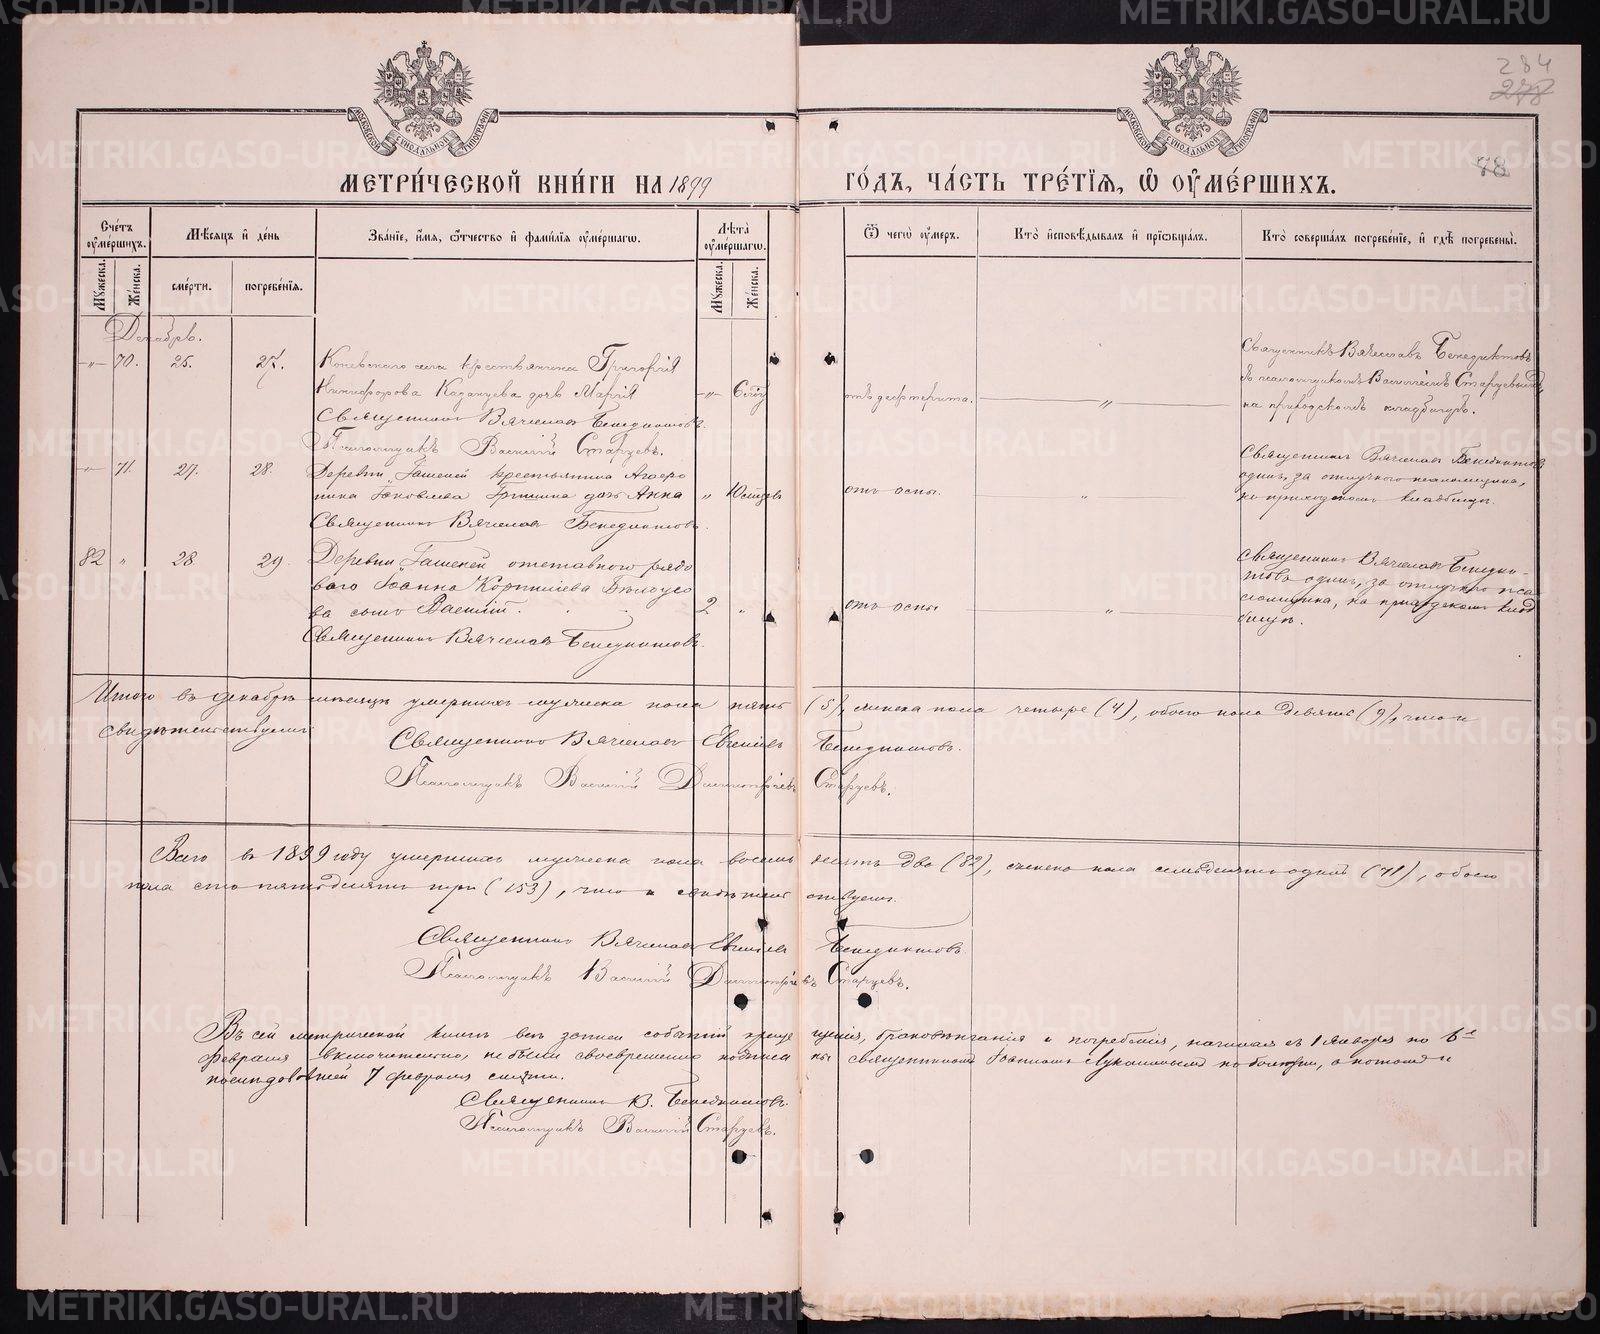 284
278
78
МОСКОВСКОЙ СѴНОДАЛЬНОЙ ТИПОГРАФІИ
МОСКОВСКОЙ СѴНОДАЛЬНОЙ ТИПОГРАФІИ
МЕТРИ́ЧЕСКОЙ КНИ́ГИ НА 1899 ГО́ДЪ, ЧА́СТЬ ТРЕ́ТІѦ, Ѡ҆ ОУ҆МЕ́РШИХЪ.
Сче́тъ оу҆ме́ршихъ.
Мѣ́сѧцъ и҆ де́нь
Зва́нїе, и҆́мѧ, ѻ҆́тчество и҆ фамі́лїѧ оу҆ме́ршагѡ.
Лѣ́та оу҆ме́ршагѡ.
Ѿ чегѡ̀ оу҆́меръ.
Кто̀ и҆сповѣ́дывалъ и҆ прїѡбща́лъ.
Кто̀ соверша́лъ погребе́нїе, и҆ гдѣ̀ погребены̀.
Мꙋ́жеска. Же́нска.
сме́рти. погребе́нїѧ.
Мꙋ́жеска. Же́нска.
Декабрь.
-"- 70. 25. 27. Коневскаго села крестьянина Григорія
Никифорова Казанцева дочь Марія -"- отъ дефтерита. "
Священникъ Вячеславъ Бенедиктовъ.
Псаломщикъ Василій Старцевъ.
Священникъ Вячеславъ Бенедиктовъ
съ псаломщикомъ Василіемъ Старцевымъ,
на приходскомъ кладбищѣ.
-"- 71. 27. 28. Деревни Гашеней крестьянина
Яковлева Гришина дочь Анна " отъ оспы. "
Священникъ Вячеславъ Бенедиктовъ.
Священникъ Вячеславъ Бенедиктовъ
одинъ, за отлучкою псаломщика,
на приходскомъ кладбищѣ.
82 " 28. 29. Деревни Гашеней отставного рядо
вого Іоанна Корнилиева Бѣлоусо
ва сынъ Василій. 2 " отъ оспы "
Священникъ Вячеславъ Бенедиктовъ.
Священникъ Вячеславъ Бенедик-
товъ одинъ, за отлучкою пса
ломщика, на приходскомъ клад
бищѣ.
Итого въ декабрѣ мѣсяцѣ умершихъ мужеска пола пять (5), женска пола четыре (4), обоего пола девять (9), что и
свидѣтельствуемъ
Священникъ Вячеславъ Евгеніевъ Бенедиктовъ.
Псаломщикъ Василій Димитріевъ Старцевъ.
Всего въ 1899 году умершихъ мужеска пола восемьдесятъ два (82), женска пола семьдесятъ одна (71), обоего
пола сто пятьдесятъ три (153), что и свидѣтельствуемъ.
Священникъ Вячеславъ Евгеніевъ Бенедиктовъ.
Псаломщикъ Василій Димитріевъ Старцевъ.
Въ сей метрической книгѣ всѣ записи событій крещенія, браковѣнчанія и погребенія, начиная съ 1 Января по 6-е
февраля включительно, не были своевременно подписаны священникомъ Іоанномъ Лукинымъ по болѣзни, а потомъ и
послѣдовавшей 7 февраля смерти.
Священникъ В. Бенедиктовъ.
Псаломщикъ Василій Старцевъ.
METRIKI.GASO-URAL.RU